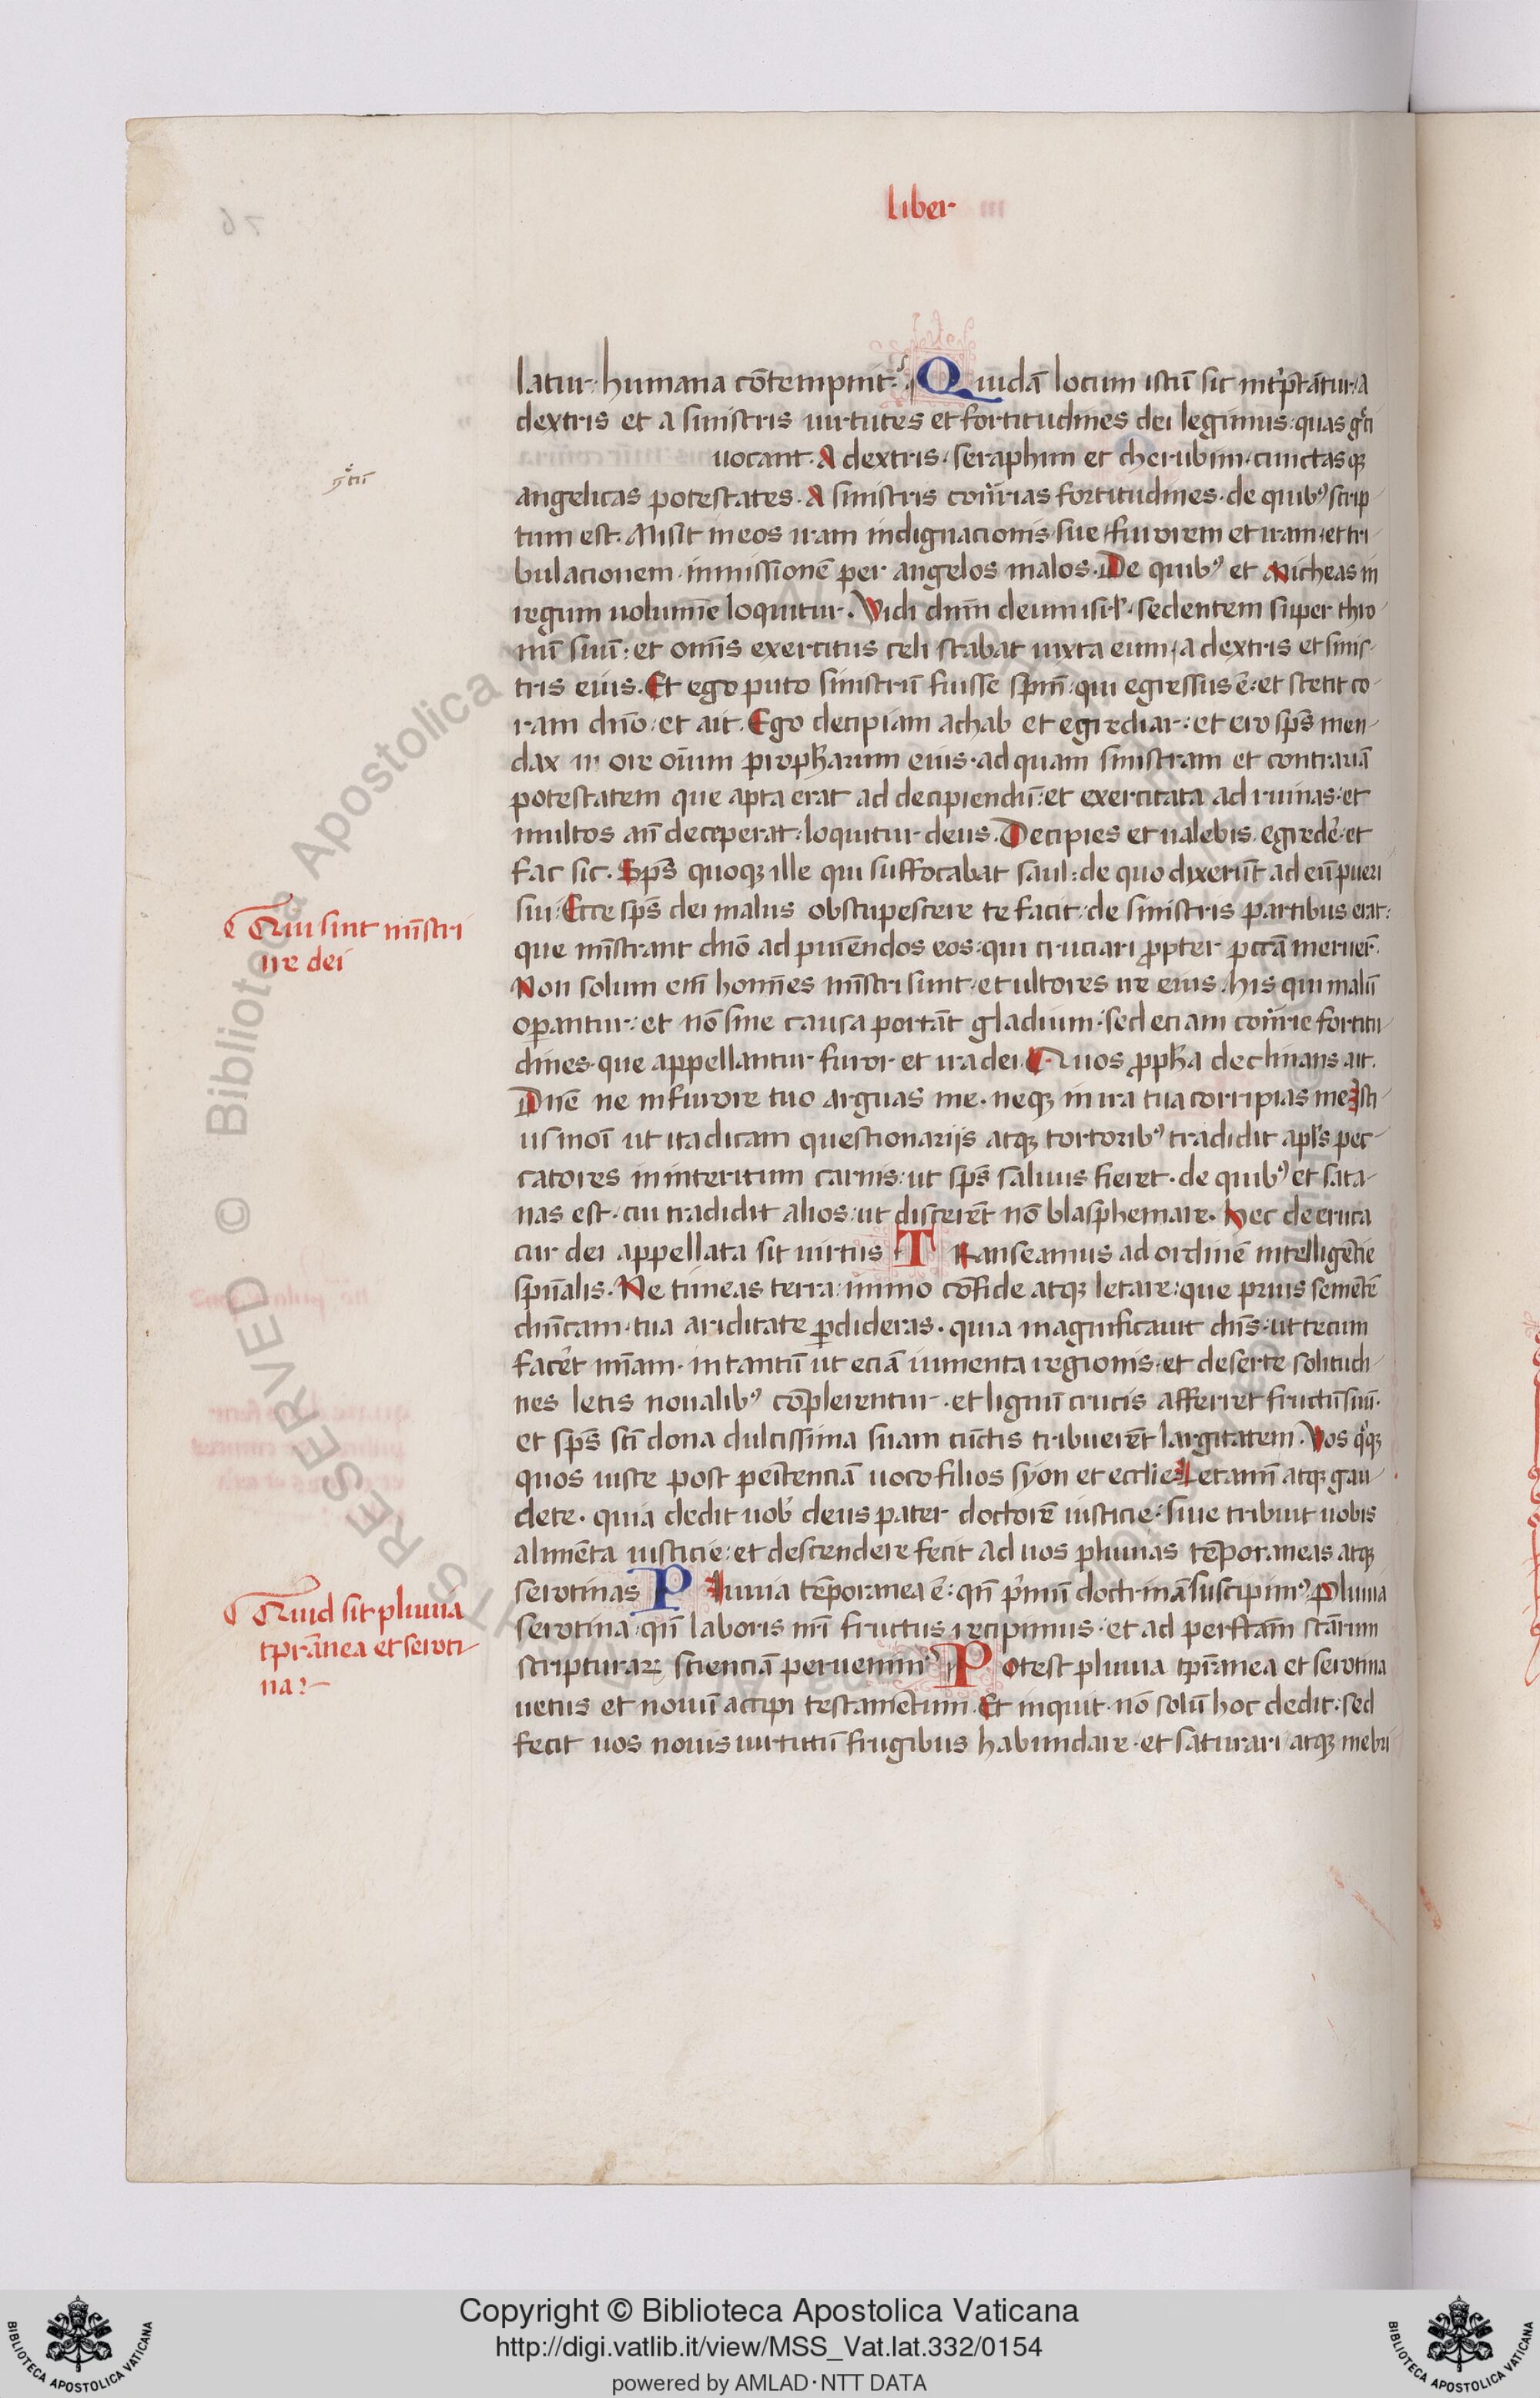 liber
latur humana cōtempnit. Quidā locum istū sic int̄p̄tātur. A
dextris et a sinistris uirtutes et fortitudines dei legimus: quas gͦci
uocant. A dextris. seraphim et cherubim. cunctasqꝫ
angelicas potestates. A sinistris cont̄rias fortitudines. de quibꝰ scrip
tum est. Misit in eos iram indignacionis sue furorem et iram. et tri
bulacionem. inmissionē per angelos malos. De quibꝰ et Micheas in
regum uolumīe loquitur. Vidi dn̄m deum isrl̄. sedentem super thro
nū suū: et omīs exercitus celi stabat iuxta eum, a dextris et sinis
tris eius. Et ego puto sinistrū fuisse spm̄: qui egressus ē: et stetit co
ram dn̄o: et ait. Ego decipiam achab et egrediar: et ero sps̄ men
dax in ore oīum prophaꝝum eius. ad quam sinistram et contrariā
potestatem que apta erat ad decipiendū: et exercitata ad ruinas: et
multos an̄ deceperat: loquitur deus. Decipies et ualebis. egredēr et
fac sic. Sps̄ quoqꝫ ille qui suffocabat saul: de quo dixerūt ad eū pueri
sui. Ecce sps̄ dei malus obstupescere te facit: de sinistris partibus erat:
que mīstrant dn̄o ad puīendos eos: qui cruciari ꝓpter pccā̄ meruer̄.
Non solum em̄ homīes mīstri sunt: et ultores ire eius. his qui malū
operantur: et nō sine causa portāt gladium. sed eciam cont̄rie fortitu
dines. que appellantur furor et ira dei. Quos ꝓpħa declinans ait.
Dn̄e ne in furore tuo arguas me. neqꝫ in ira tua corripias me. Isti
usmoī ut ita dicam questionarijs atqꝫ tortoribꝰ tradidit apl̄s pec
catores in interitum carnis: ut sps̄ saluus fieret. de quibꝰ et sata
nas est. cui tradidit alios: ut discerēt nō blasphemare. Hec de eruca
cur dei appellata sit uirtus Transeamus ad ordinē intelligēcie
spūalis. Ne timeas terra: immo cōfide atqꝫ letare: que prius semētē
dn̄icam. tua ariditate ꝑdideras. quia magnificauit dn̄s. ut tecum
facēt mīam. in tantū ut eciā iumenta regionis. et deserte solitudi
nes letis noualibꝰ cōplerentur. et lignū crucis afferret fructū suū.
et sps̄ scī dona dulcissima suam cūctis tribuerēt largitatem. Vos qͦqꝫ
quos iuste post penitenciā uoco filios syon et ecclie. Letamī atqꝫ gau
dete. quia dedit uob̄ deus pater doctorē iusticie. siue tribuit uobis
alimēta iusticie: et descendere fecit ad uos pluuias tēporaneas atqꝫ
serotinas Pluuia tēporanea ē: qn̄ pͥmū doctrinā suscipimꝰ. Pluuia
serotina: qn̄ laboris nrī fructus recipimus. et ad perfctam scārum
scripturaꝝ scienciā peruenimꝰ Potest pluuia tpr̄anea et serotina
uetus et nouū accipi testamētum. Et inquit. nō solū hoc dedit. sed
fecit uos nouis uirtutū frugibus habundare. et saturari atqꝫ inebri
Qui sint mīstri
ire dei
Quid sit pluuia
tprānea et seroti
na?
Copyright © Biblioteca Apostolica Vaticana
http://digi.vatlib.it/view/MSS_Vat.lat.332/0154
powered by AMLAD·NTT DATA
BIBLIOTECA APOSTOLICA VATICANA
BIBLIOTECA APOSTOLICA VATICANA